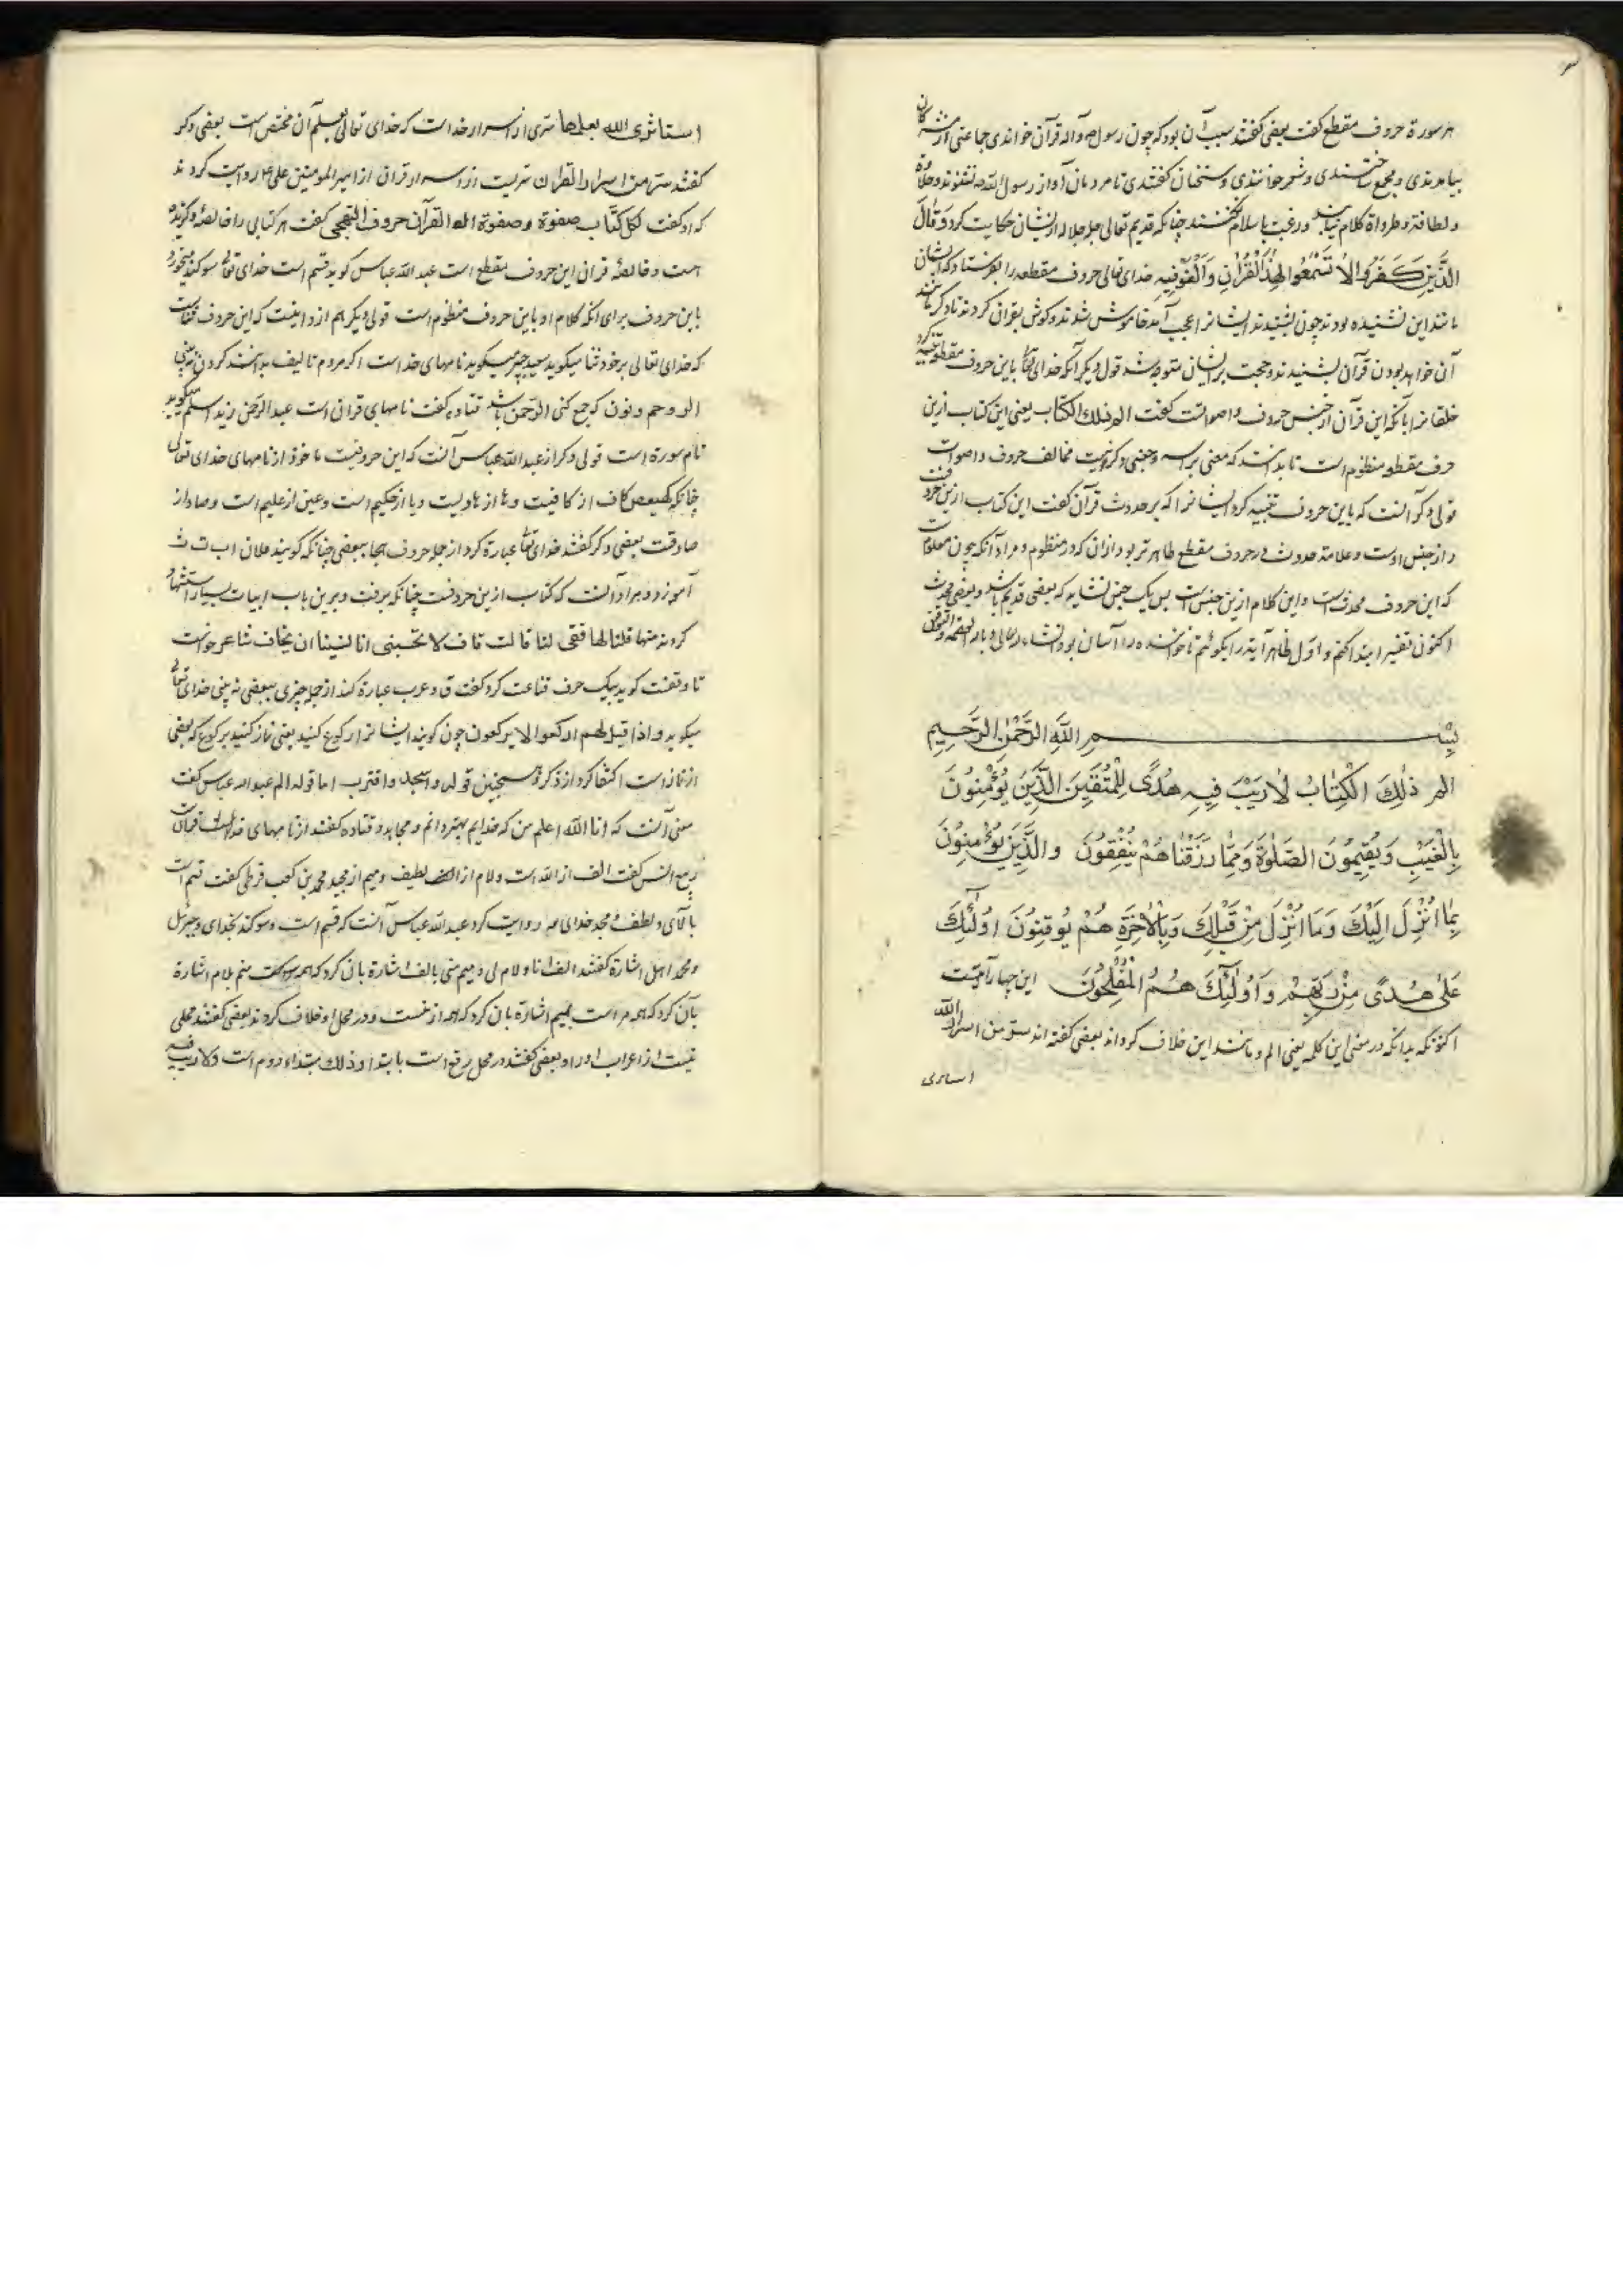 هر سورة حروف مقطع گفت بعضی گفتند سبب آن بود که چون رسول ص و آله قرآن خواندی جماعتی از مشرکان
بیامدندی و بجمع بنشستندی و شعر خواندندی و سخنان گفتندی تا مردمان آواز رسول الله نشنوند و حلاوة
و لطافة و طراوة کلام نیابند و رغبت باسلام نکنند چنانکه قدیم تعالی جل جلاله از ایشان حکایت کرد وَقَالَ
الَّذِينَ كَفَرُوا لَا تَسْمَعُوا لِهٰذَا الْقُرْاٰنِ وَالْغَوْا فِيهِ خدای تعالی حروف مقطعه را بفرستاد که ایشان
مانند این نشنیده بودند چون بشنیدند ایشانرا عجب آمد خاموش شدند و گوش بقرآن کردند تا دگر مانند
آن خواهد بودن قرآن بشنیدند و حجت بر ایشان متوجه شد قول دیگر آنکه خدای تعا باین حروف مقطعه تنبیه کرد
خلقانرا بآنکه این قرآن از جنس حروف و اصواتست گفت الم ذلك الكتاب یعنی این کتاب ازین
حرف مقطعه منظوم است تا بدانند که معنی براسه و جنسی دگر نیست مخالف حروف و اصوات
قولی دگر آنست که باین حروف تنبیه کرد ایشانرا که بر حدوث قرآن گفت این کتاب ازین حروفست
و از جنس اوست و علامة حدوث در حروف مقطع ظاهرتر بود از آن که در منظوم و مراد آنکه چون معلومست
که این حروف محدثست و این کلام ازین جنس است پس یک جنس نشاید که بعضی قدیم باشد و بعضی محدث
اکنون تفسیر ابتدا کنم و اول ظاهر آیة را بگوئیم تا خواننده را آسان بود انشاء الله تعالی و بالله العصمة و التوفیق
بِسْمِ اللّٰهِ الرَّحْمٰنِ الرَّحِيمِ
الم ذٰلِكَ الْكِتَابُ لَا رَيْبَ فِيهِ هُدًى لِلْمُتَّقِينَ الَّذِينَ يُؤْمِنُونَ
بِالْغَيْبِ وَيُقِيمُونَ الصَّلٰوةَ وَمِمَّا رَزَقْنَاهُمْ يُنْفِقُونَ وَالَّذِينَ يُؤْمِنُونَ
بِمَا اُنْزِلَ اِلَيْكَ وَمَا اُنْزِلَ مِنْ قَبْلِكَ وَبِالْاٰخِرَةِ هُمْ يُوقِنُونَ اُولٰئِكَ
عَلٰى هُدًى مِنْ رَبِّهِمْ وَاُولٰئِكَ هُمُ الْمُفْلِحُونَ این چهار آیتست
اکنونکه بدانکه در معنی این کلمه یعنی الم و مانند این خلاف کرده اند بعضی گفته اند سر من اسرار الله
استاثری
استاثری الله بعلمها سری از اسرار خداست که خدای تعالی بعلم آن مختص است بعضی دگر
گفتند سر من اسرار القران سریست از اسرار قران از امیرالمومنین علی ع روایت کردند
که او گفت لکل کتاب صفوة و صفوة القرآن حروف التهجی گفت هر کتابی را خالصهٔ و گزیدهٔ
است و خالصهٔ قران این حروف مقطع است عبد الله عباس گوید قسم است خدای تعا سوگند میخورد
باین حروف برای آنکه کلام او باین حروف منظوم است قولی دیگر هم ازو اینست که این حروف ثنائست
که خدای تعالی بر خود ثنا میگوید سعید جبیر میگوید نامهای خداست اگر مردم تالیف بدانند کردن نه بینی
الر و حم و نون که جمع کنی الرحمن باشد قتاده گفت نامهای قرآن است عبد الرحمن زید اسلم گوید
نام سورة است قولی دگر از عبد الله عباس آنست که این حروفیست ماخوذ از نامهای خدای تعالی
چنانکه کهیعص کاف از کافیست و ها از هادیست و یا از حکیم است و عین از علیم است و صاد از
صادقت بعضی دگر گفتند خدای تعا عبارة کرد از جمله حروف هجا ببعضی چنانکه گویند فلان ا ب ت ث
آموزد و مراد آنست که کتاب ازین حروفست چنانکه برفت و برین باب ابیات بسیار استشهاد
کردند منها قلنا لها قفی لنا قالت قاف لا تحسبنی انا نسینا ان یخاف شاعر خواست
تا وقفت گوید بیک حرف قناعت کرد گفت ق و عرب عبارة کند از جمله چیزی ببعضی نه بینی خدای تعالی
میگوید و اذا قیل لهم ارکعوا لا یرکعون چون گویند ایشانرا رکوع کنید یعنی نماز کنید برکوع که بعضی
از نماز است اکتفا کرد از ذکر و همچنین قوله و اسجد و اقترب اما قوله الم عبد الله عباس گفت
معنی آنست که انا الله اعلم من که خدایم بهتر دانم و مجاهد و قتاده گفتند از نامهای قرآنست
ربیع انس گفت الف از الله است و لام از لطیف و میم از مجید محمد بن کعب قرظی گفت قسم است
بآلای و لطف و مجد خدای روایت کرد عبد الله عباس آنست که قسم است و سوگند بخدای و جبرئیل
و محمد اهل اشارة گفتند الف انا و لام لی و میم منی بالف اشارة بآن کرد که همه منم بلام اشارة
بآن کرد که همه مراست بمیم اشارة بآن کرد که همه از منست و در محل او خلاف کردند بعضی گفتند محلی
نیست از اعراب او را و بعضی گفتند در محل رفع است بابتدا و ذلك ابتداء دوم است و لا ریب فیه